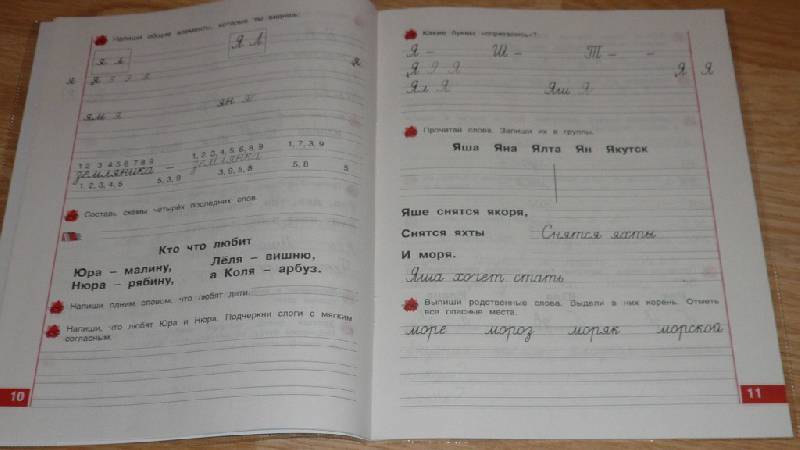 Напиши общие элементы, которые ты видишь.
Я Л
я л
я
я я я я
я
ям я
ян я
1 2 3 4 5 6 7 8 9
1, 2, 3, 4, 5, 6, 8, 9
1, 7, 3, 9
земляника – землянка
1, 2, 3, 4, 5
5, 3, 9
3, 9, 5, 8
5, 8
5
Составь схемы четырёх последних слов.
Кто что любит
Юра – малину,
Лёля – вишню,
Нюра – рябину,
а Коля – арбуз.
Напиши одним словом, что любят дети.
Напиши, что любят Юра и Нюра. Подчеркни слоги с мягким
согласным.
10
Какие буквы «спрятались»?
Я – Ш – Т – –
Я Я Я
Я Я
Ял Я
Яш Я
Прочитай слова. Запиши их в группы.
Яша Яна Ялта Ян Якутск
Яше снятся якоря,
Снятся яхты
Снятся яхты
И моря.
Яша хочет стать
Выпиши родственные слова. Выдели в них корень. Отметь
все опасные места.
море мороз моряк морской
11